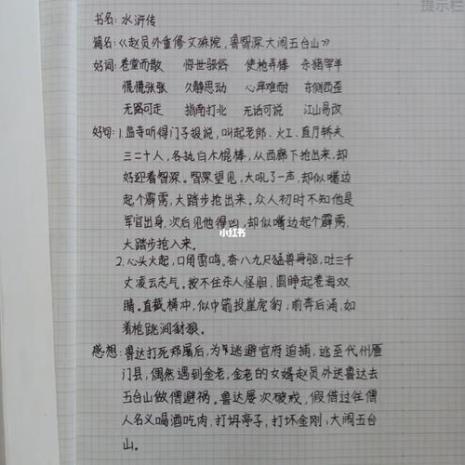 提示栏
书名：水浒传
篇名：《赵员外重修文殊院，鲁智深大闹五台山》
好词：卷堂而散 使枪弄棒
慌慌张张 久静思动 心痒难耐 东倒西歪
无路可走 指南打北 无话可说 江山易改
好句：1.监寺听得门子报说，叫起老郎、火工、直厅轿夫
三二十人，各执白木棍棒，从西廊下抢出来，却
好迎着智深。智深望见，大吼了一声，却似嘴边
起个霹雳，大踏步抢出来。众人初时不知他是
军官出身，次后见他得凶，却似嘴边起个霹雳，
大踏步抢入来。
2.心头火起，口角雷鸣。奋八九尺猛兽身躯，吐三千
丈凌云志气。按不住杀人怪胆，圆睁起卷海双
睛。直截横冲，似中箭投崖虎豹，前奔后涌，如
着枪跳涧豺狼。
感想：鲁达打死郑屠后，为逃避官府追捕，逃至代州雁
门县，偶然遇到金老，金老的女婿赵员外送鲁达去
五台山做僧避祸。鲁达屡次破戒，假借过往僧
人名义喝酒吃肉，打坍亭子，打坏金刚，大闹五台
山。
小红书